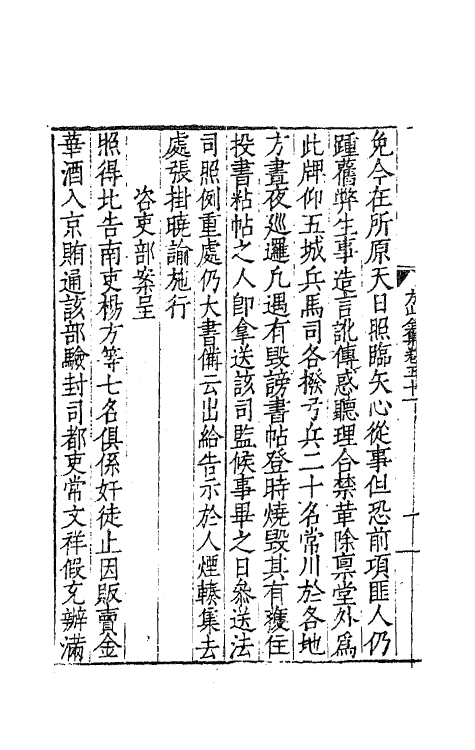 免今在所原天日照臨矢心從事但恐前項匪人仍
踵舊弊生事造言訛傳惑聽理合禁革除稟堂外爲
此牌仰五城兵馬司各撥弓兵二十名常川於各地
方晝夜廵邏凢遇有毀謗書帖登時燒毀其有獲住
投書粘帖之人卽拿送該司監候事畢之日叅送法
司照例重處仍大書備云出給告示於人煙輳集去
處張掛曉諭施行
咨吏部案呈
照得北告南吏楊方等七名俱係奸徒止因販賣金
華酒入京賄通該部驗封司都吏常文祥假充辦滿
卷五十一